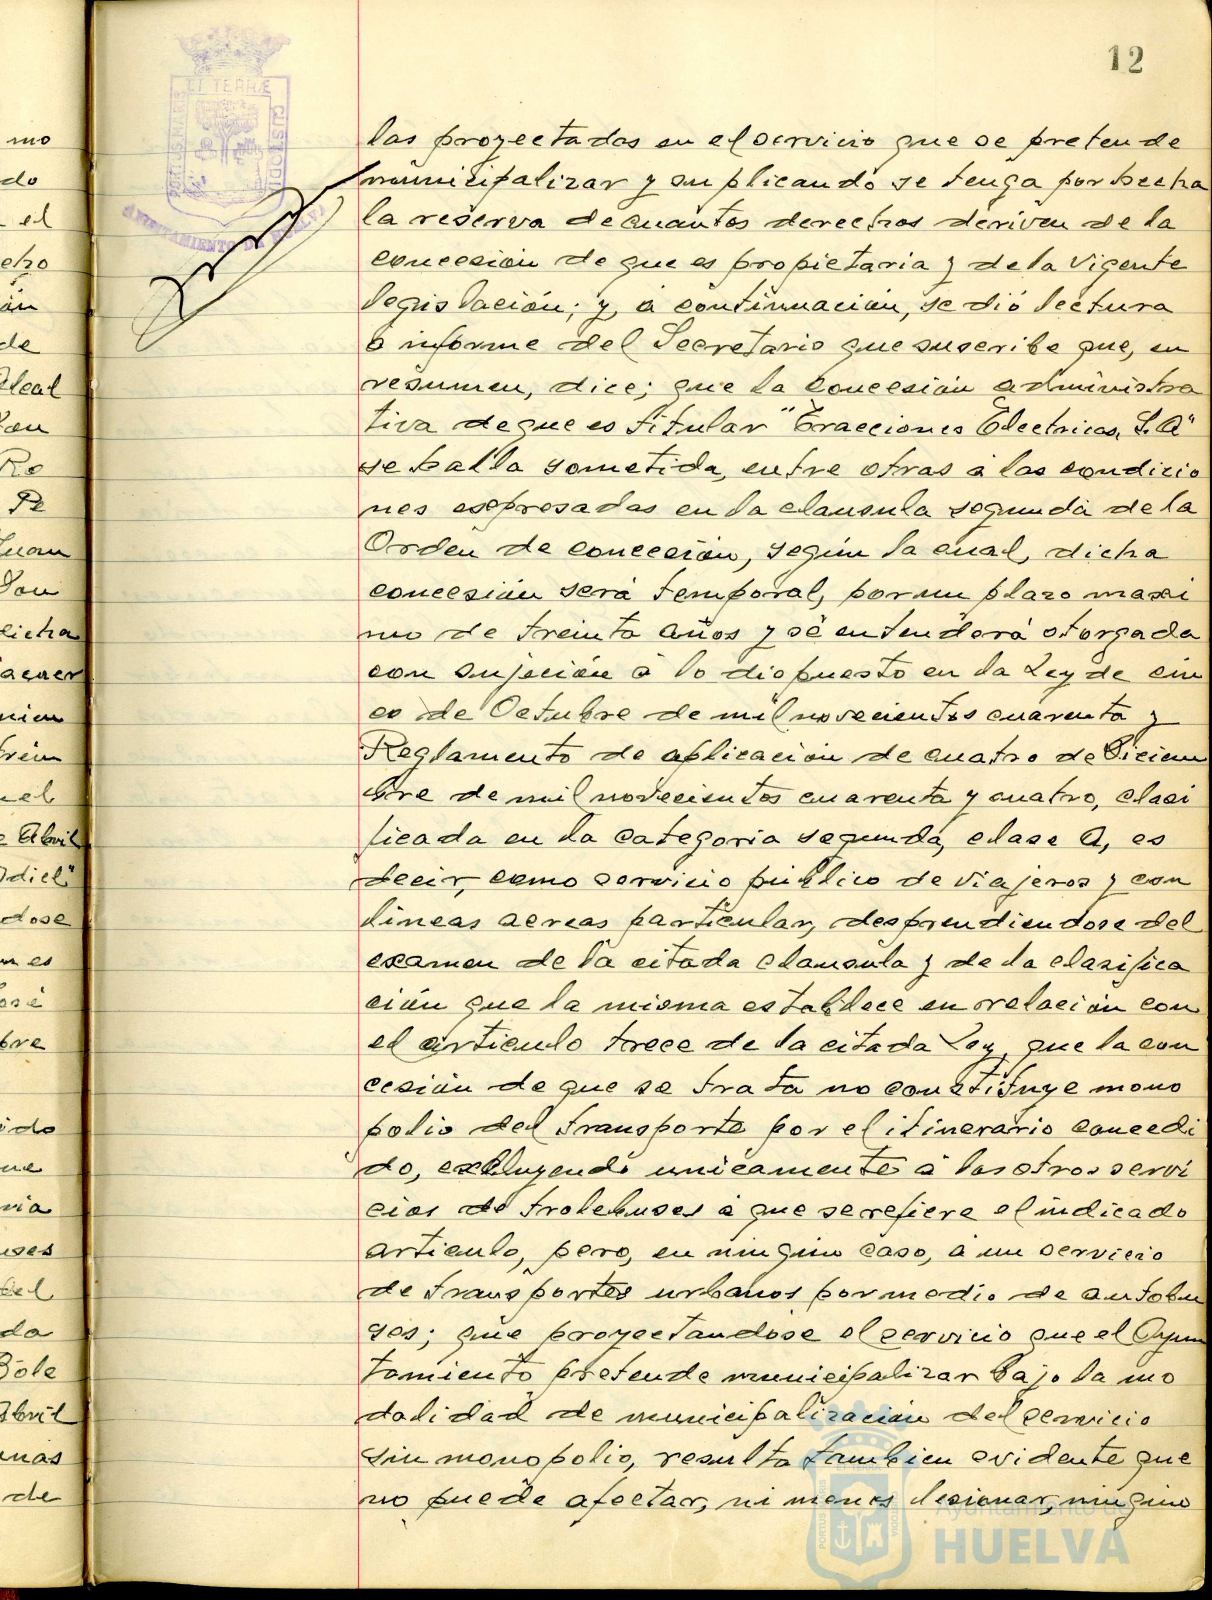 12
las proyectadas en el servicio que se pretende
municipalizar y suplicando se tenga por hecha
la reserva de cuantos derechos deriven de la
concesión de que es propietaria y de la vigente
legislación; y, á continuación, se dió lectura
á informe del Secretario que suscribe que, en
resumen, dice; que la concesión administra
tiva de que es titular "Tracciones Electricas, S.A"
se halla sometida, entre otras á las condicio
nes expresadas en la clausula segunda de la
Orden de concesión, según la cual, dicha
concesión será temporal, por un plazo maxi
mo de treinta años y se entenderá otorgada
con sujeción á lo dispuesto en la Ley de cin
co de Octubre de mil novecientos cuarenta y
Reglamento de aplicación de cuatro de Diciem
bre de mil novecientos cuarenta y cuatro, clasi
ficada en la categoria segunda, clase A, es
decir, como servicio público de viajeros y con
lineas aereas particular, desprendiendose del
examen de la citada clausula y de la clasifica
ción que la misma establece en relación con
el articulo trece de la citada Ley, que la con
cesión de que se trata no constituye mono
polio del transporte por el itinerario concedi
do, excluyendo unicamente á los otros servi
cios de trolebuses á que se refiere el indicado
articulo, pero, en ningun caso, á un servicio
de transportes urbanos por medio de autobu
ses; que proyectandose el servicio que el Ayun
tamiento pretende municipalizar bajo la mo
dalidad de municipalización del servicio
sin monopolio, resulta tambien evidente que
no puede afectar, ni menos lesionar, ningun
Ayuntamiento de
HUELVA